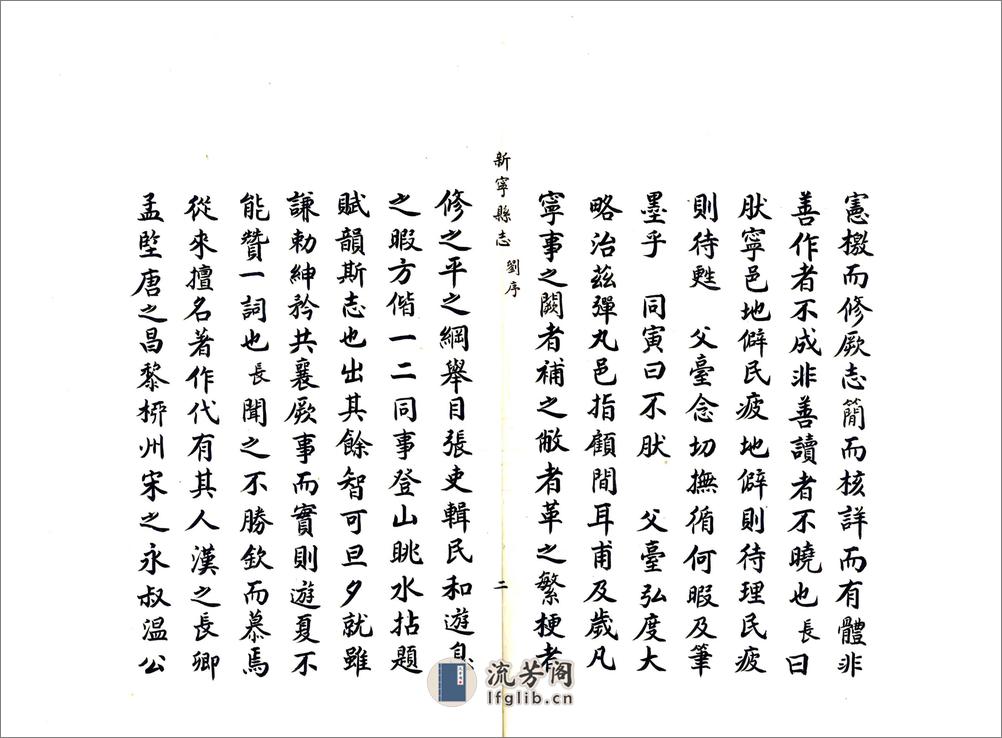 憲檄而修厥志簡而核詳而有體非
善作者不成非善讀者不曉也長曰
肰寧邑地僻民疲地僻則待理民疲
則待甦 父臺念切撫循何暇及筆
墨乎 同寅曰不肰 父臺弘度大
略治茲彈丸邑指顧間耳甫及歲凡
寧事之闕者補之敝者革之繁梗者
新寧縣志 劉序 二
修之平之綱舉目張吏輯民和遊息
之暇方偕一二同事登山眺水拈題
賦韻斯志也出其餘智可旦夕就雖
謙勅紳衿共襄厥事而實則遊夏不
能贊一詞也長聞之不勝欽而慕焉
從來擅名著作代有其人漢之長卿
孟堅唐之昌黎柳州宋之永叔溫公
流芳阁
lfglib.cn